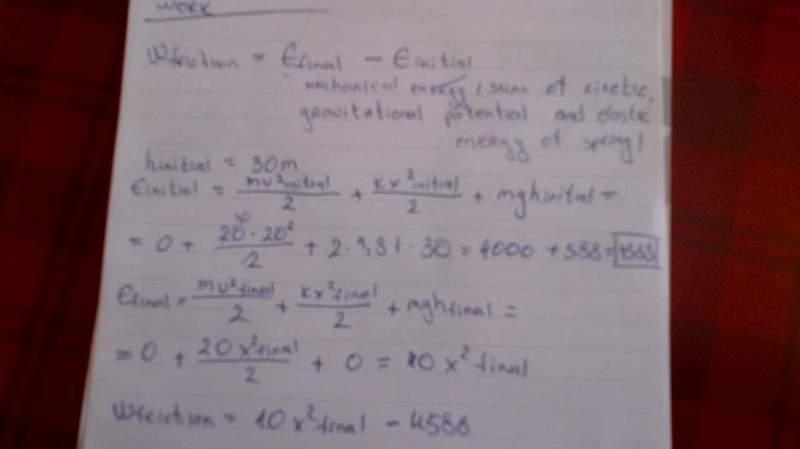 Work
Wfriction = Efinal - Einitial
mechanical energy / sum of kinetic,
gravitational potential and elastic
energy of spring/
hinitial = 30m
Einitial = mv²initial/2 + kx²initial/2 + mghinitial =
= 0 + 20·20²/2 + 2·9,81·30 = 4000 + 588 = 4588
Efinal = mv²final/2 + kx²final/2 + mghfinal =
= 0 + 20x²final/2 + 0 = 10x²final
Wfriction = 10x²final - 4588